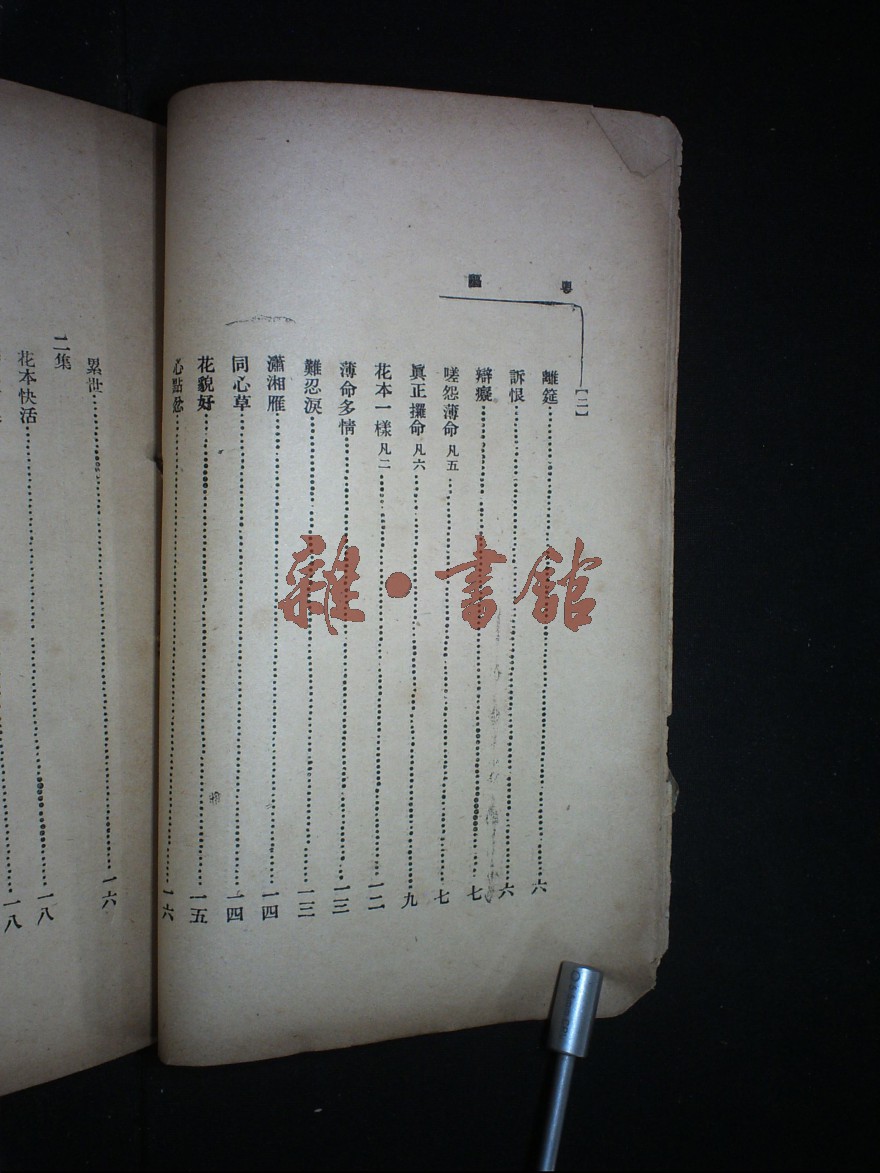 粵謳
[二]
離筵 六
訴恨 六
辯癡 七
嗟怨薄命 凡五 七
眞正攞命 凡六 九
花本一樣 凡二 一二
薄命多情 一三
難忍淚 一三
瀟湘雁 一四
同心草 一四
花貌好 一五
心點忿 一六
累世 一六
二集
花本快活 一八
一八
雜·書館